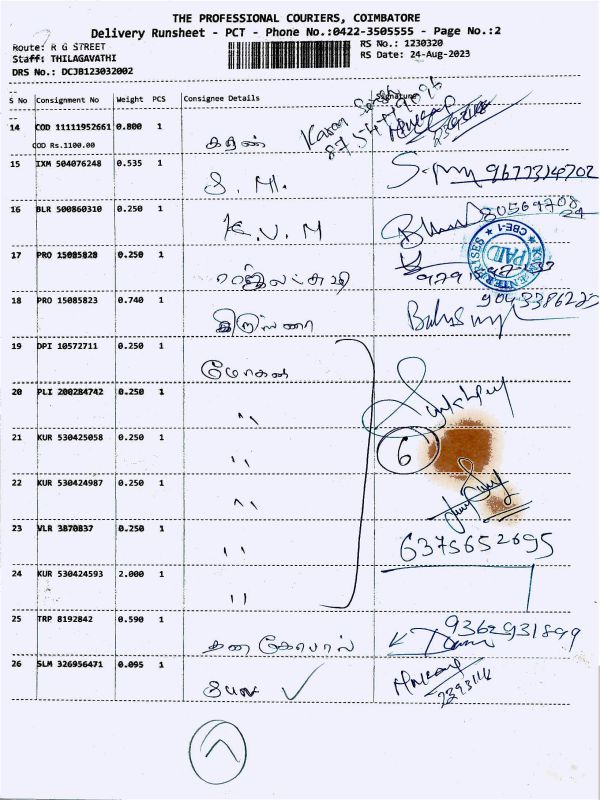 THE PROFESSIONAL COURIERS, COIMBATORE
Delivery Runsheet - PCT - Phone No.:0422-3505555 - Page No.:2
Route: R G STREET
RS No.: 1230320
Staff: THILAGAVATHI
RS Date: 24-Aug-2023
DRS No.: DCJB123032002
S No Consignment No Weight PCS Consignee Details Signature
14 COD 11111952661 0.800 1 கரண் Karan
COD Rs.1100.00
15 IXM 504076248 0.535 1 S. M. 9677314702
16 BLR 500860310 0.250 1 K. V. M
17 PRO 15085828 0.250 1
PAID
CBE-1
18 PRO 15085823 0.740 1
19 DPI 10572711 0.250 1 மோகன்
20 PLI 200284742 0.250 1 ,,
21 KUR 530425058 0.250 1 ,, 6
22 KUR 530424987 0.250 1 ,,
23 VLR 3870837 0.250 1 ,, 6375652695
24 KUR 530424593 2.000 1 ,,
25 TRP 8192842 0.590 1 9362931899
26 SLM 326956471 0.095 1
2393116